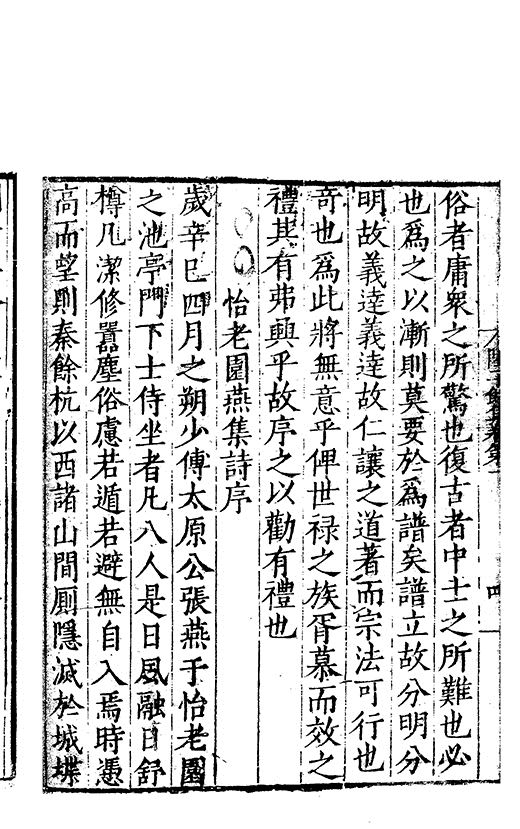 俗者庸衆之所驚也復古者中士之所難也必
也爲之以漸則莫要於爲譜矣譜立故分明分
明故義達義達故仁讓之道著而宗法可行也
奇也爲此將無意乎俾世禄之族胥慕而效之
禮其有弗興乎故序之以勸有禮也
怡老園燕集詩序
歲辛巳四月之朔少傅太原公張燕于怡老園
之池亭門下士侍坐者凡八人是日風融日舒
樽几潔修囂塵俗慮若遁若避無自入焉時憑
高而望則秦餘杭以西諸山間厠隱滅於城堞